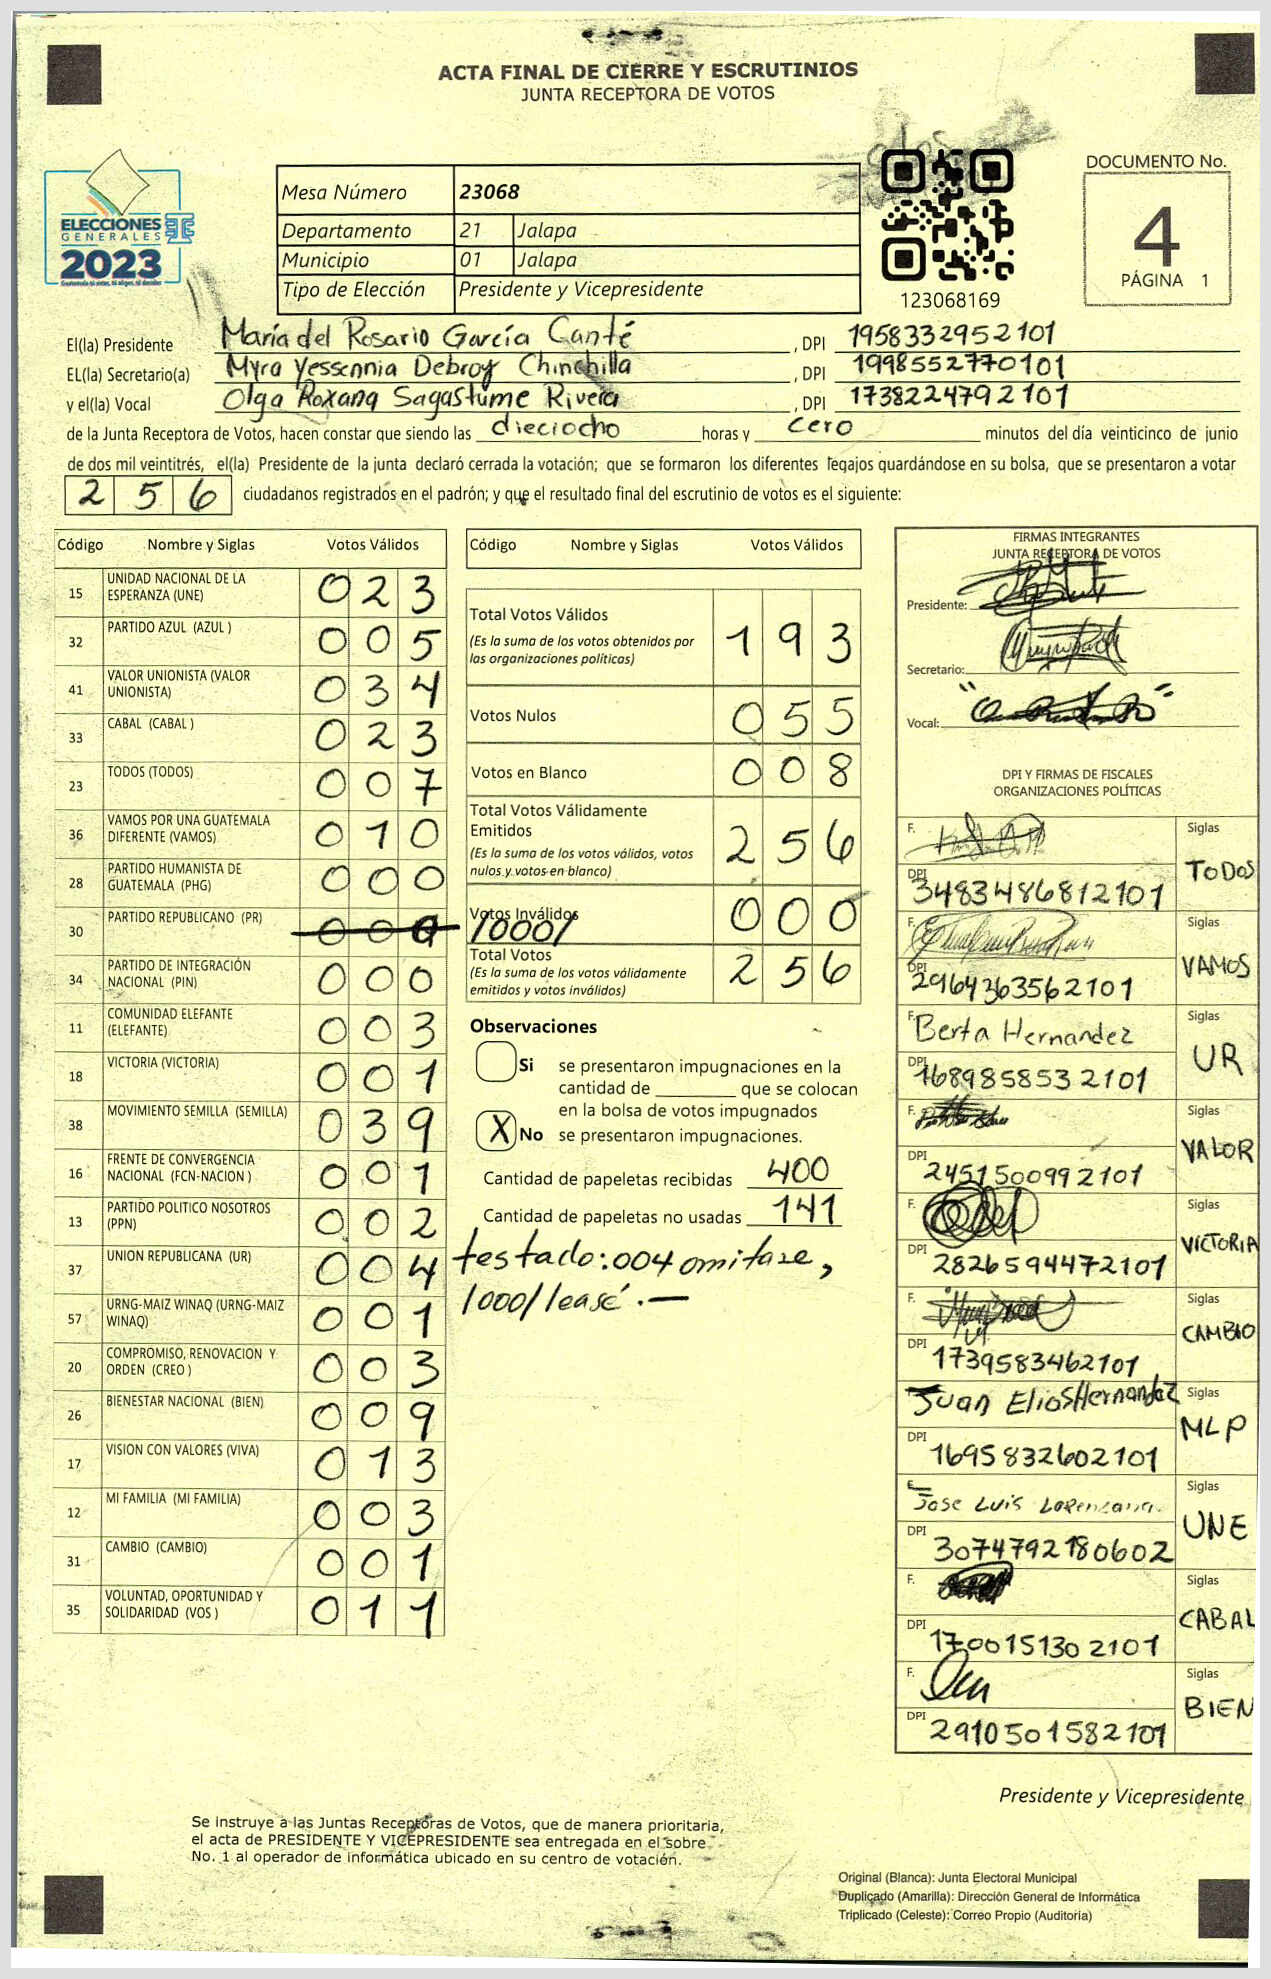 ACTA FINAL DE CIERRE Y ESCRUTINIOS
JUNTA RECEPTORA DE VOTOS
ELECCIONES
GENERALES
2023
Mesa Número 23068
Departamento 21 Jalapa
Municipio 01 Jalapa
Tipo de Elección Presidente y Vicepresidente
123068169
DOCUMENTO No.
4
PÁGINA 1
El(la) Presidente María del Rosario García Canté , DPI 1958332952101
EL(la) Secretario(a) Myra Yessennia Debroy Chinchilla , DPI 1998552770101
y el(la) Vocal Olga Roxana Sagastume Rivera , DPI 1738224792101
de la Junta Receptora de Votos, hacen constar que siendo las dieciocho horas y cero minutos del día veinticinco de junio
de dos mil veintitrés, el(la) Presidente de la junta declaró cerrada la votación; que se formaron los diferentes legajos guardándose en su bolsa, que se presentaron a votar
256 ciudadanos registrados en el padrón; y que el resultado final del escrutinio de votos es el siguiente:
Código Nombre y Siglas Votos Válidos
15 UNIDAD NACIONAL DE LA ESPERANZA (UNE) 023
32 PARTIDO AZUL (AZUL ) 005
41 VALOR UNIONISTA (VALOR UNIONISTA) 034
33 CABAL (CABAL ) 023
23 TODOS (TODOS) 007
36 VAMOS POR UNA GUATEMALA DIFERENTE (VAMOS) 010
28 PARTIDO HUMANISTA DE GUATEMALA (PHG) 000
30 PARTIDO REPUBLICANO (PR) /000/
34 PARTIDO DE INTEGRACIÓN NACIONAL (PIN) 000
11 COMUNIDAD ELEFANTE (ELEFANTE) 003
18 VICTORIA (VICTORIA) 001
38 MOVIMIENTO SEMILLA (SEMILLA) 039
16 FRENTE DE CONVERGENCIA NACIONAL (FCN-NACION ) 001
13 PARTIDO POLITICO NOSOTROS (PPN) 002
37 UNION REPUBLICANA (UR) 004
57 URNG-MAIZ WINAQ (URNG-MAIZ WINAQ) 001
20 COMPROMISO, RENOVACION Y ORDEN (CREO ) 003
26 BIENESTAR NACIONAL (BIEN) 009
17 VISION CON VALORES (VIVA) 013
12 MI FAMILIA (MI FAMILIA) 003
31 CAMBIO (CAMBIO) 001
35 VOLUNTAD, OPORTUNIDAD Y SOLIDARIDAD (VOS ) 011
Código Nombre y Siglas Votos Válidos
Total Votos Válidos 193
(Es la suma de los votos obtenidos por las organizaciones políticas)
Votos Nulos 055
Votos en Blanco 008
Total Votos Válidamente Emitidos 256
(Es la suma de los votos válidos, votos nulos y votos en blanco)
Votos Inválidos 000
Total Votos 256
(Es la suma de los votos válidamente emitidos y votos inválidos)
Observaciones
Si se presentaron impugnaciones en la
cantidad de ________ que se colocan
en la bolsa de votos impugnados
X No se presentaron impugnaciones.
Cantidad de papeletas recibidas 400
Cantidad de papeletas no usadas 141
testado: 004 omitase,
/000/ leasé.—
FIRMAS INTEGRANTES
JUNTA RECEPTORA DE VOTOS
Presidente:
Secretario:
Vocal:
DPI Y FIRMAS DE FISCALES
ORGANIZACIONES POLÍTICAS
F. Siglas TODOS
DPI 3483486812101
F. Siglas VAMOS
DPI 2964363562101
F. Berta Hernandez Siglas UR
DPI 1689858532101
F. Siglas VALOR
DPI 2451500992101
F. Siglas VICTORIA
DPI 2826594472101
F. Siglas CAMBIO
DPI 1739583462101
F. Juan Elias Hernandez Siglas MLP
DPI 1695832602101
F. Jose Luis Lorenzana Siglas UNE
DPI 3074792180602
F. Siglas CABAL
DPI 1700151302101
F. Siglas BIEN
DPI 2910501582101
Presidente y Vicepresidente
Se instruye a las Juntas Receptoras de Votos, que de manera prioritaria,
el acta de PRESIDENTE Y VICEPRESIDENTE sea entregada en el sobre
No. 1 al operador de informática ubicado en su centro de votación.
Original (Blanca): Junta Electoral Municipal
Duplicado (Amarilla): Dirección General de Informática
Triplicado (Celeste): Correo Propio (Auditoria)